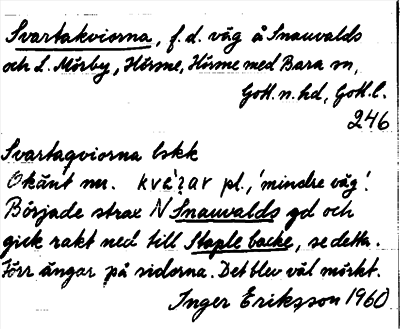 Svartakviorna, f.d. väg å Snauvalds
och L. Mörby, Hörsne, Hörsne med Bara sn,
Gotl. n. hd, Gotl. l.
246
Svartaqviorna lskk
Okänt nu. kvé̀ʔar pl., 'mindre väg'.
Började strax N Snauvalds gd och
gick rakt ned till Staple backe, se detta.
Förr ängar på sidorna. Det blev väl mörkt.
Inger Eriksson 1960